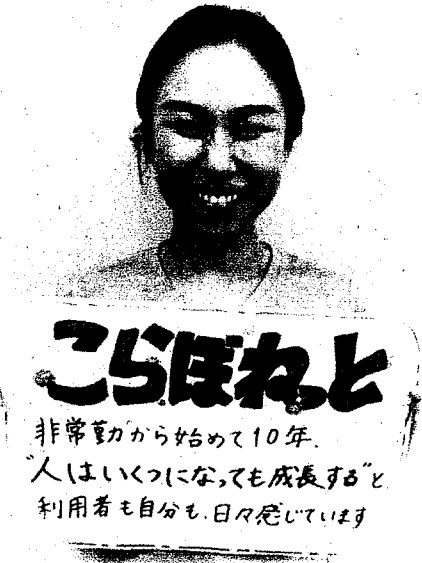 こらぼねっと
非常勤から始めて10年、
"人はいくつになっても成長する"と
利用者も自分も、日々感じています